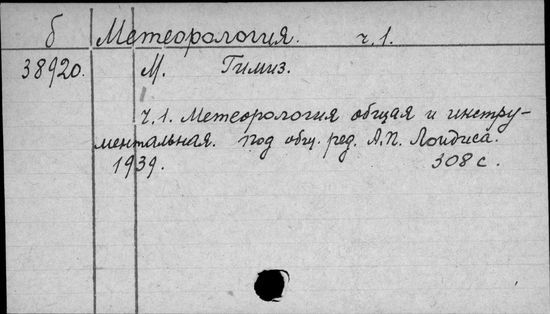 б Метеорология. ч.1.
38920. М. Гимиз.
ч.1. Метеорология общая и инстру-
ментальная. под общ. ред. А.П. Лоидиса.
1939. 308 с.